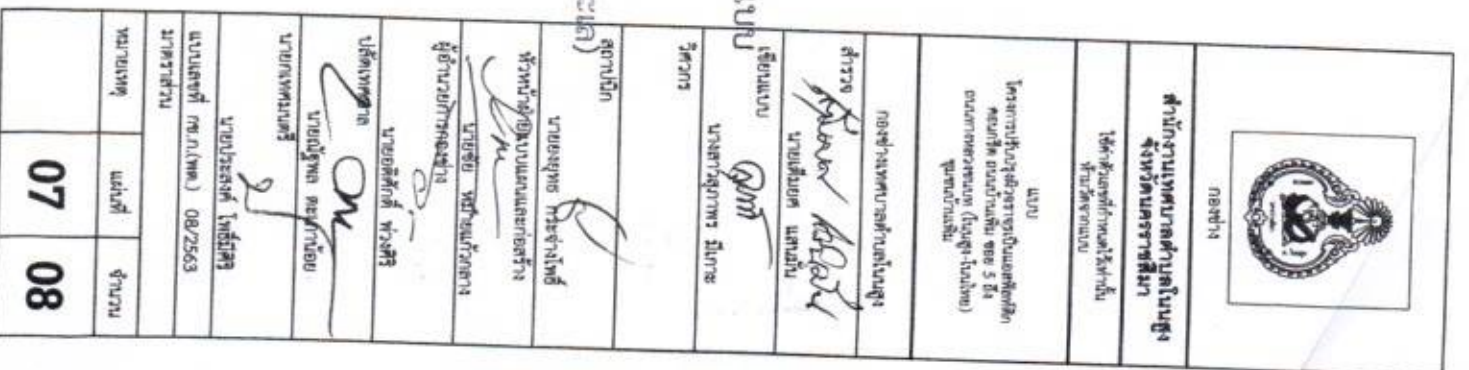 กองช่าง
สำนักงานเทศบาลตำบลโนนสูง
จังหวัดนครราชสีมา
ใช้ค่าตัวเลขที่กำหนดไว้เท่านั้น
ห้ามวัดจากแบบ
แบบ
โครงการปรับปรุงผิวจราจรเป็นแอสฟัลท์ติก
คอนกรีต ถนนบ้านเพิ่ม ซอย 5 ถึง
ถนนทางหลวงชนบท (โนนสูง-โนนไทย)
ชุมชนบ้านเพิ่ม
กองช่างเทศบาลตำบลโนนสูง
สำรวจ
นายเตียยศ แสนมั่น
เขียนแบบ
นางสาวสุภาพร มีเกาะ
วิศวกร
สถาปนิก
นายยงยุทธ กระจ่างโพธิ์
หัวหน้าฝ่ายแบบแผนและก่อสร้าง
นายชัย หมายแก้วกลาง
ผู้อำนวยการกองช่าง
นายอดิศักดิ์ พ่วงศิริ
ปลัดเทศบาล
นายณัฐพล
นายกเทศมนตรี
นายประสงค์ โพธิ์มีศิริ
แบบเลขที่ กช.ก.(ทต.) 08/2563
มาตราส่วน
หมายเหตุ แผ่นที่ จำนวน
07 08